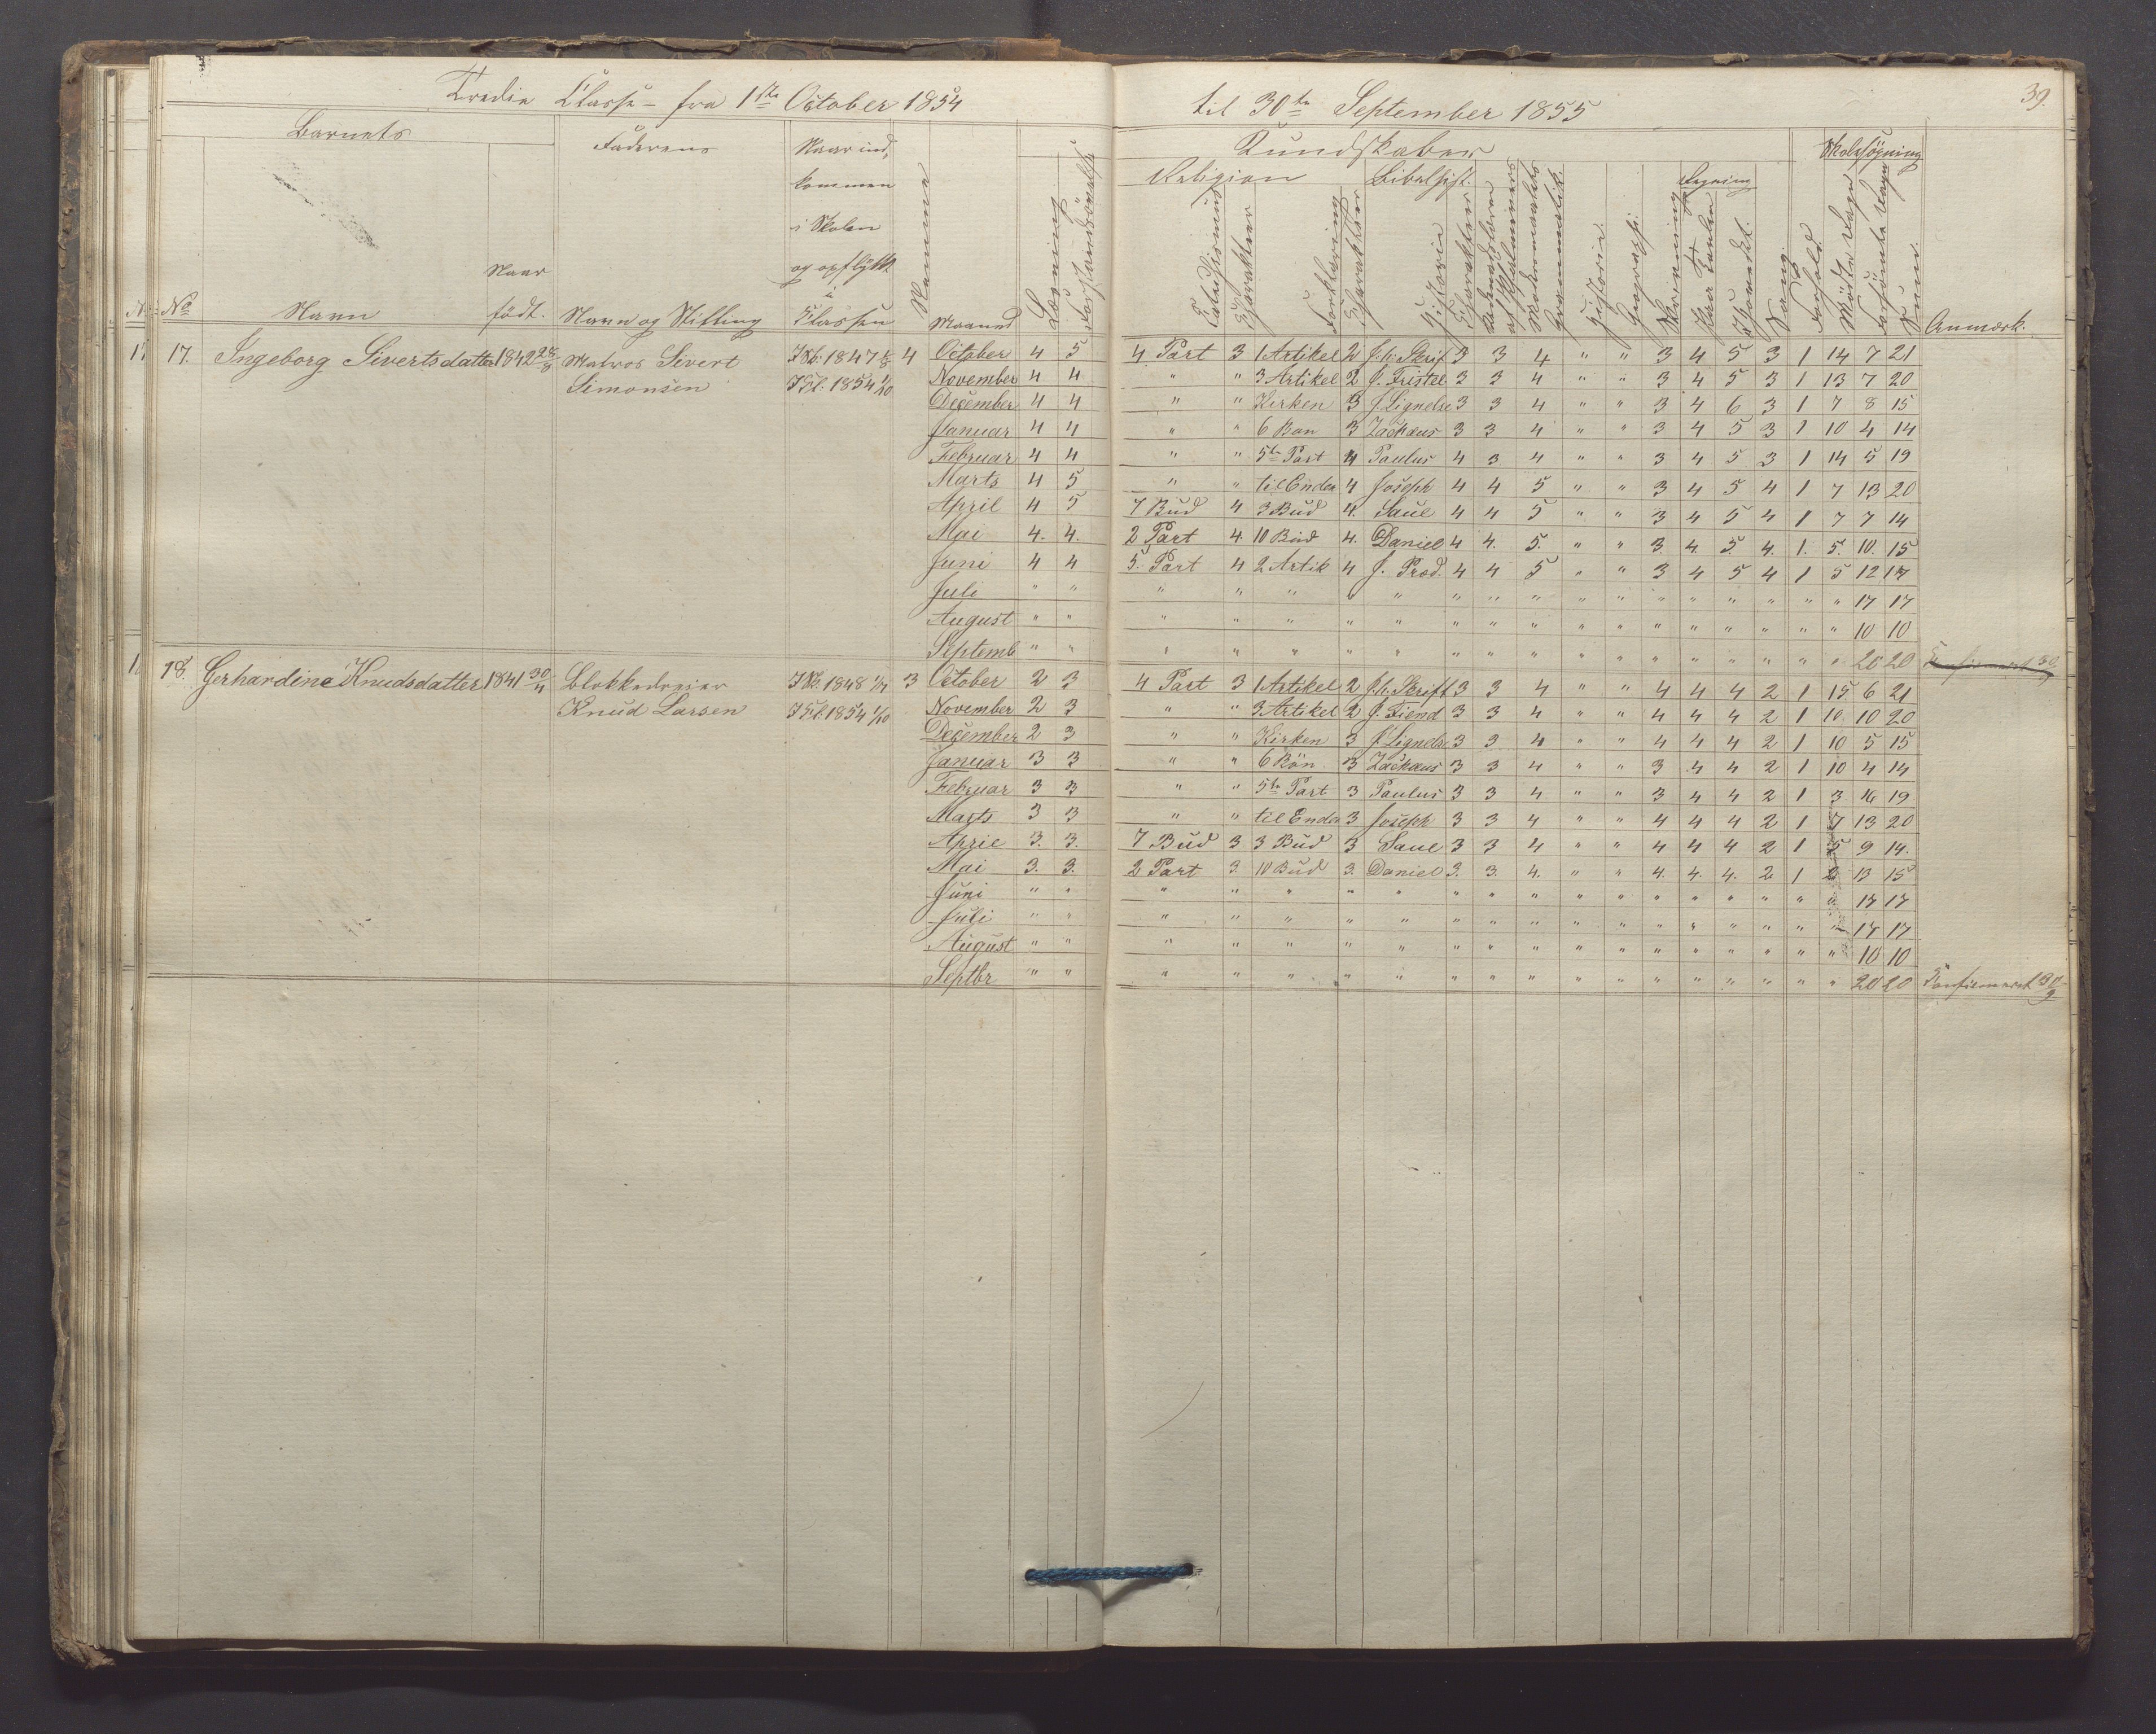 Tredie Classe - fra 1ste October 1854
til 30te September 1855
39.
Barnets
Faderens
Naar ind-
kommen
i Skolen
og opflyttet
i
Classen
Naar
født.
No
Navn
Navn og Stilling
Maaned
Læsning
Forstandsøvelse
Kundskaber
Religion
Bibelhist.
Regning
Skolesøgning
Catechismus
Charakteer
Forklaring
Charakteer
Historie
Charakteer
Modersmaalets
Grammatik
Historie
Geografi
Skrivning
Paa Tavlen
I Hovedet.
Sang
Forhold
Mødte Dage
Forsømte Dage
Sum
Anmærk.
17. Ingeborg Sivertsdatter 1842 28/8 Matros Sivert I Sk. 1847 1/8 4 October 4 5 4 Part 3 1 Artikel 2 J. h. Skrif 3 3 4 " " 3 4 5 3 1 14 7 21
Simonsen I Cl. 1854 1/10 November 4 4 " " 3 Artikel 2 J. Fristel 3 3 4 " " 3 4 5 3 1 13 7 20
December 4 4 " " Kirken 3 J. Lignelse 3 3 4 " " 3 4 6 3 1 7 8 15
Januar 4 4 " " 6 Bøn 3 Zachæus 3 3 4 " " 3 4 5 3 1 10 4 14
Februar 4 4 " " 5te Part 4 Paulus 4 3 4 " " 3 4 5 3 1 14 5 19
Marts 4 5 " " til Enden 4 Joseph 4 4 5 " " 3 4 5 4 1 7 13 20
April 4 5 7 Bud 4 3 Bud 4. Saul 4 4 5 " " 3 4 5 4 1 7 7 14
Mai 4. 4. 2 Part 4. 10 Bud 4. Daniel 4 4. 5. " " 3. 4. 5. 4. 1. 5. 10. 15
Juni 4 4 5. Part 4 2 Artik 4 J. Præd. 4 4 5 " " 3 4 5 4 1 5 12 17
Juli " " " " " " " " " " " " " " " " " " " 17 17
August " " " " " " " " " " " " " " " " " " " 10 10
Septemb " " " " " " " " " " " " " " " " " " " 20 20 Confirmeret 30
18. Gerhardine Knudsdatter 1841 30/4 Blokkedreier I Sk. 1848 1/4 3 October 2 3 4 Part 3 1 Artikel 2 J. h. Skrift 3 3 4 " " 4 4 4 2 1 15 6 21
Knud Larsen I Cl. 1854 1/10 November 2 3 " " 3 Artikel 2 J. Fiend 3 3 4 " " 4 4 4 2 1 10 10 20
December 2 3 " " Kirken 3 J. Lignelse 3 3 4 " " 4 4 4 2 1 10 5 15
Januar 3 3 " " 6 Bön 3 Zachæus 3 3 4 " " 3 4 4 2 1 10 4 14
Februar 3 3 " " 5te Part 3 Paulus 3 3 4 " " 3 4 4 2 1 3 16 19
Marts 3 3 " " til Enden 3 Joseph 3 3 4 " " 4 4 4 2 1 7 13 20
April 3. 3. 7 Bud 3 3 Bud 3 Saul 3 3 4 " " 4 4 4 2 1 5 9 14.
Mai 3. 3. 2 Part 3. 10 Bud 3. Daniel 3. 3. 4. " " 4. 4. 4. 2 1 2 13 15
Juni " " " " " " " " " " " " " " " " " " " 17 17
Juli " " " " " " " " " " " " " " " " " " " 17 17
August " " " " " " " " " " " " " " " " " " " 10 10
Septbr " " " " " " " " " " " " " " " " " " " 20 20 Confirmeret 30/9